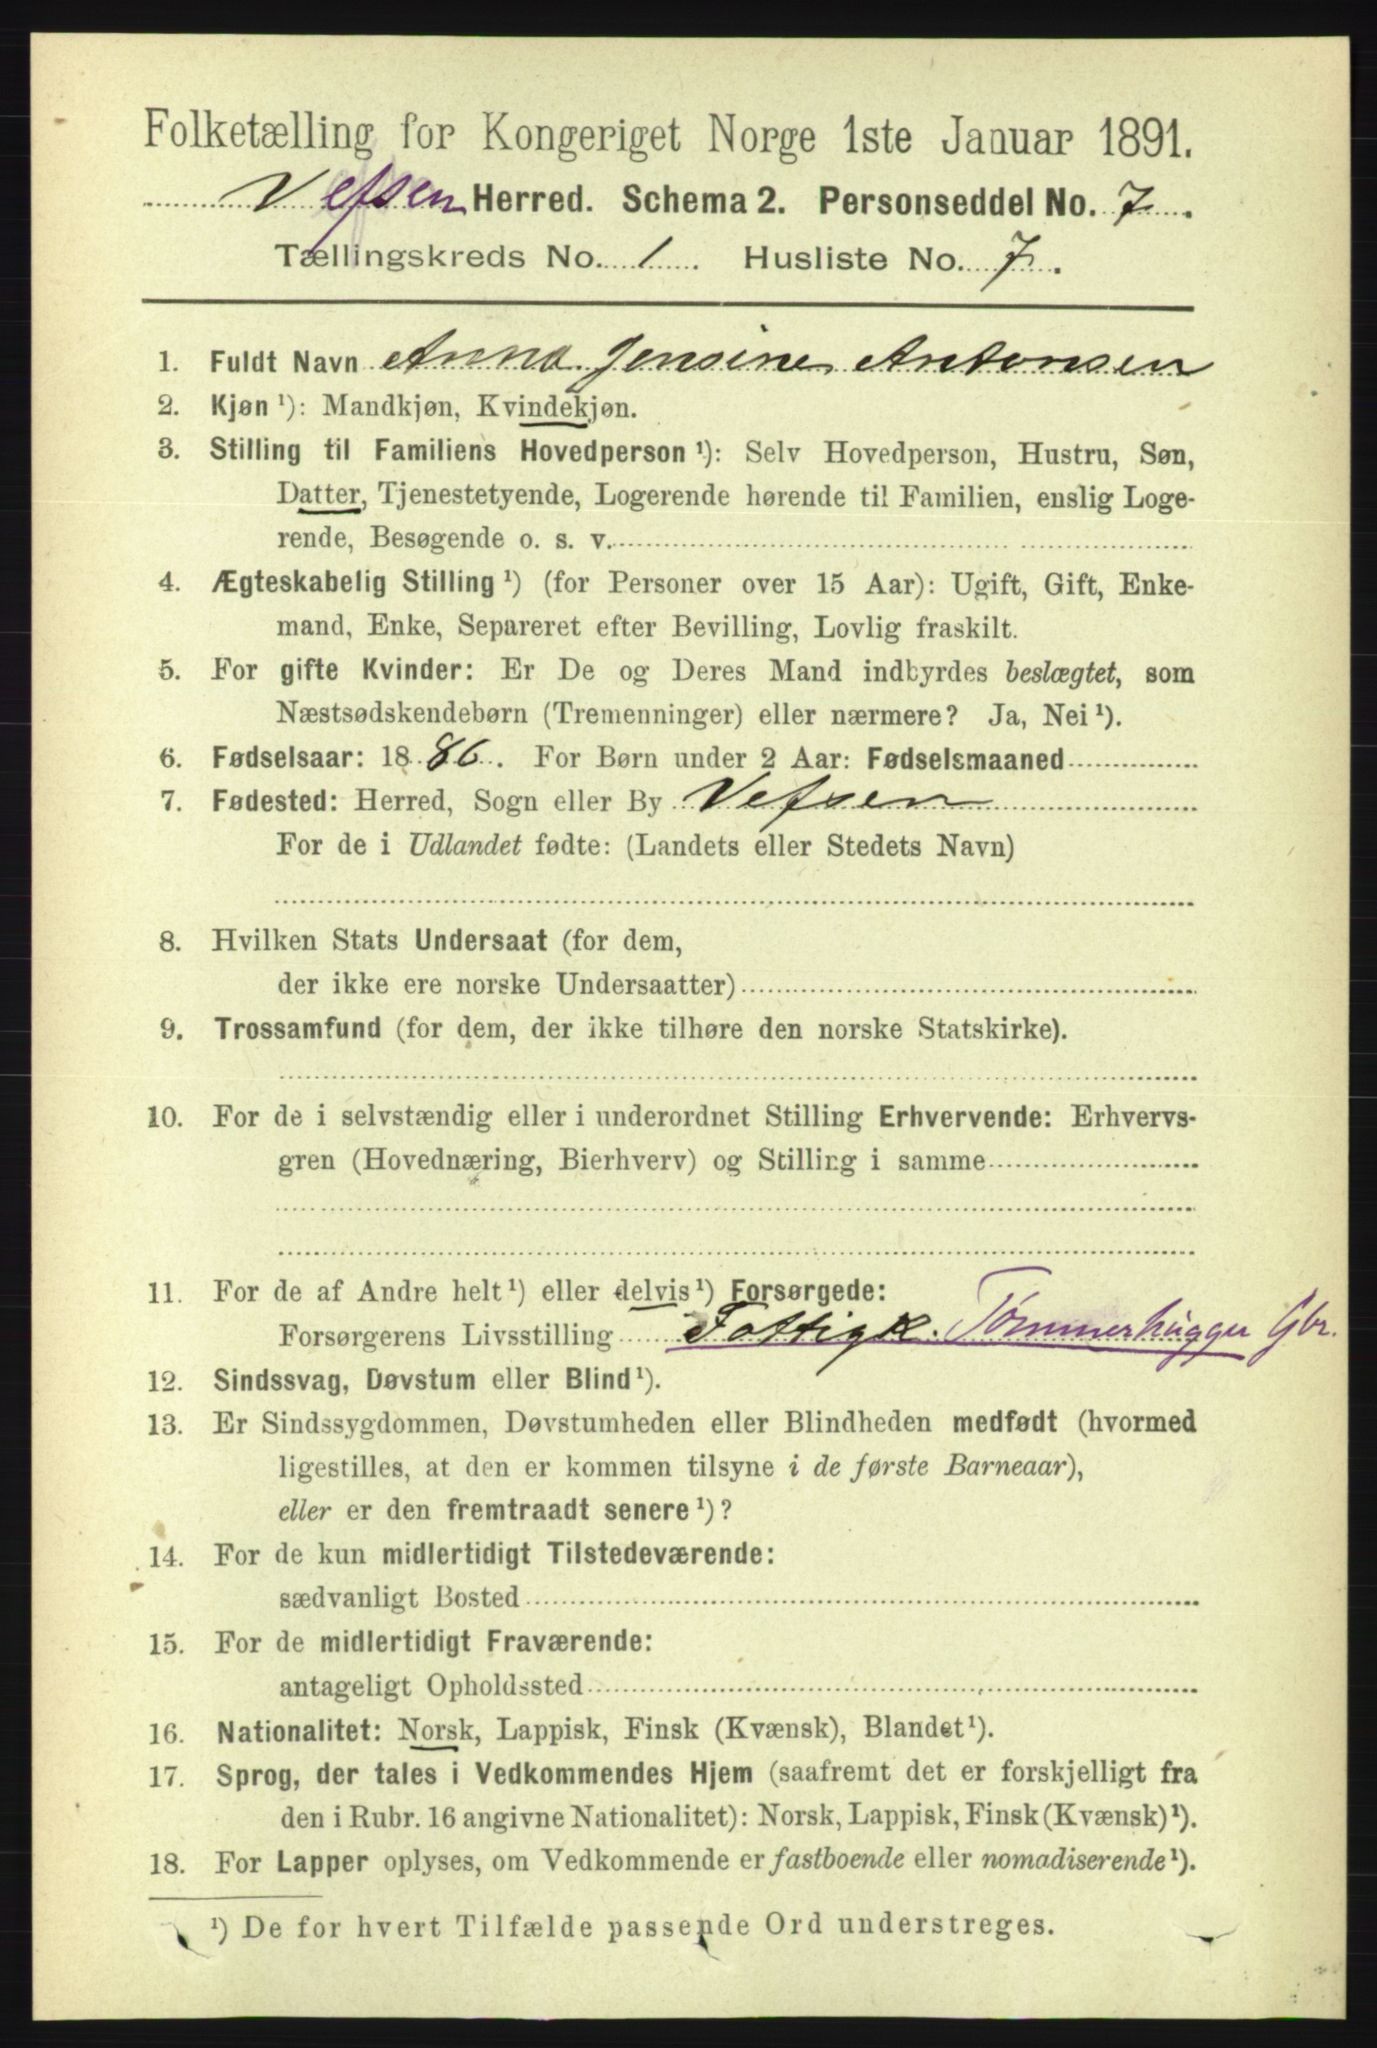 Folketælling for Kongeriget Norge 1ste Januar 1891.
Vefsen Herred. Schema 2. Personseddel No. 7.
Tællingskreds No. 1. Husliste No. 7.
1. Fuldt Navn Anna Jensine Antonsen
2. Kjøn ¹): Mandkjøn, Kvindekjøn.
3. Stilling til Familiens Hovedperson ¹): Selv Hovedperson, Hustru, Søn,
Datter, Tjenestetyende, Logerende hørende til Familien, enslig Loge-
rende, Besøgende o. s. v.
4. Ægteskabelig Stilling ¹) (for Personer over 15 Aar): Ugift, Gift, Enke-
mand, Enke, Separeret efter Bevilling, Lovlig fraskilt.
5. For gifte Kvinder: Er De og Deres Mand indbyrdes beslægtet, som
Næstsødskendebørn (Tremenninger) eller nærmere? Ja, Nei ¹).
6. Fødselsaar: 1886. For Børn under 2 Aar: Fødselsmaaned
7. Fødested: Herred, Sogn eller By Vefsen
For de i Udlandet fødte: (Landets eller Stedets Navn)
8. Hvilken Stats Undersaat (for dem,
der ikke ere norske Undersaatter)
9. Trossamfund (for dem, der ikke tilhøre den norske Statskirke).
10. For de i selvstændig eller i underordnet Stilling Erhvervende: Erhvervs-
gren (Hovednæring, Bierhverv) og Stilling i samme
11. For de af Andre helt ¹) eller delvis ¹) Forsørgede:
Forsørgerens Livsstilling Fattigk. Tømmerhugger Gbr.
12. Sindssvag, Døvstum eller Blind ¹).
13. Er Sindssygdommen, Døvstumheden eller Blindheden medfødt (hvormed
ligestilles, at den er kommen tilsyne i de første Barneaar),
eller er den fremtraadt senere ¹)?
14. For de kun midlertidigt Tilstedeværende:
sædvanligt Bosted
15. For de midlertidigt Fraværende:
antageligt Opholdssted
16. Nationalitet: Norsk, Lappisk, Finsk (Kvænsk), Blandet ¹).
17. Sprog, der tales i Vedkommendes Hjem (saafremt det er forskjelligt fra
den i Rubr. 16 angivne Nationalitet): Norsk, Lappisk, Finsk (Kvænsk) ¹).
18. For Lapper oplyses, om Vedkommende er fastboende eller nomadiserende ¹).
¹) De for hvert Tilfælde passende Ord understreges.